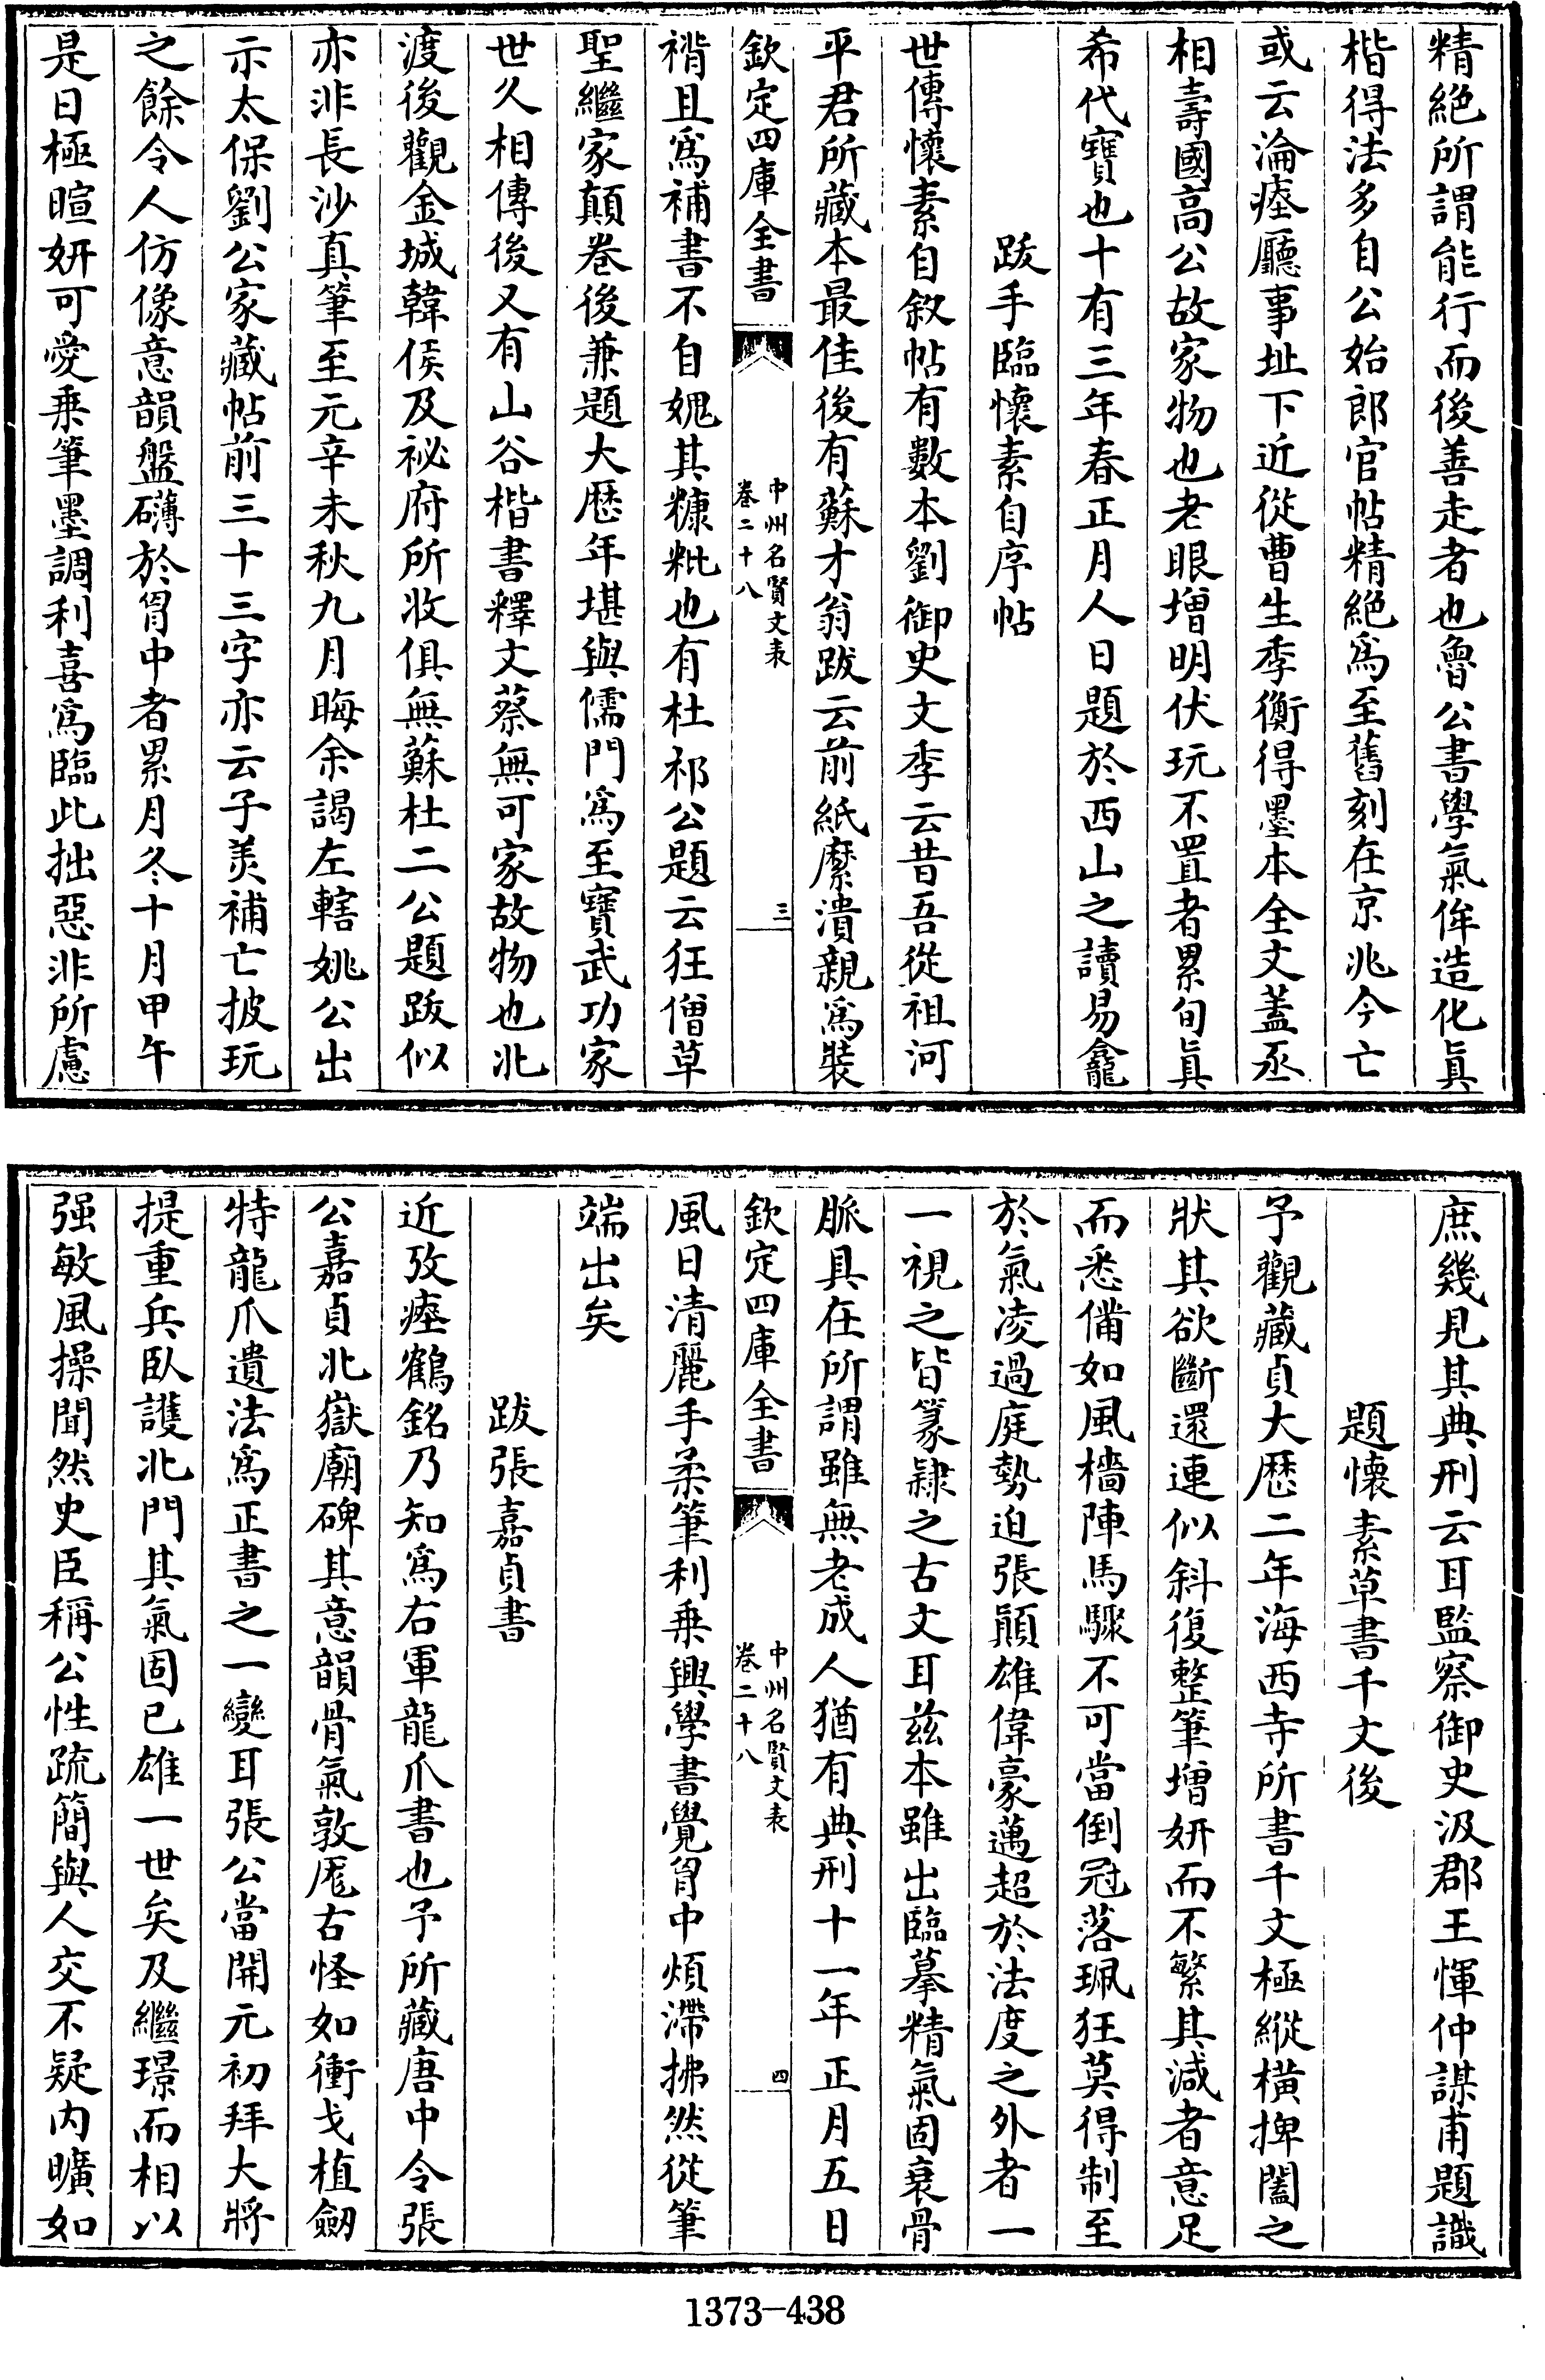 精絕所謂能行而後善走者也魯公書學氣侔造化眞
楷得法多自公始郎官帖精絕爲至舊刻在京兆今亡
或云淪瘞廳事址下近從曹生季衡得墨本全文蓋丞
相壽國高公故家物也老眼增明伏玩不置者累旬眞
希代寶也十有三年春正月人日題於西山之讀易龕
跋手臨懷素自序帖
世傳懷素自敘帖有數本劉御史文季云昔吾從祖河
平君所藏本最佳後有蘇才翁跋云前紙縻潰親爲裝
欽定四庫全書
中州名賢文表
卷二十八
三
褙且爲補書不自媿其糠粃也有杜祁公題云狂僧草
聖繼家顛卷後兼題大歷年堪與儒門爲至寶武功家
世久相傳後又有山谷楷書釋文蔡無可家故物也北
渡後觀金城韓侯及祕府所收俱無蘇杜二公題跋似
亦非長沙真筆至元辛未秋九月晦余謁左轄姚公出
示太保劉公家藏帖前三十三字亦云子美補亡披玩
之餘令人仿像意韻盤礴於胷中者累月冬十月甲午
是日極暄妍可愛乗筆墨調利喜爲臨此拙惡非所慮
庶幾見其典刑云耳監察御史汲郡王惲仲謀甫題識
題懷素草書千文後
予觀藏貞大歷二年海西寺所書千文極縱橫捭闔之
狀其欲斷還連似斜復整筆增妍而不繁其減者意足
而悉備如風檣陣馬驟不可當倒冠落珮狂莫得制至
於氣凌過庭勢迫張顚雄偉豪邁超於法度之外者一
一視之皆篆隸之古文耳兹本雖出臨摹精氣固衰骨
脈具在所謂雖無老成人猶有典刑十一年正月五日
欽定四庫全書
中州名賢文表
卷二十八
四
風日清麗手柔筆利乗興學書覺胷中煩滯拂然從筆
端出矣
跋張嘉貞書
近攷瘞鶴銘乃知爲右軍龍爪書也予所藏唐中令張
公嘉貞北嶽廟碑其意韻骨氣敦厖古怪如衝戈植劒
特龍爪遺法爲正書之一變耳張公當開元初拜大將
提重兵臥護北門其氣固已雄一世矣及繼璟而相以
强敏風操聞然史臣稱公性疏簡與人交不疑内曠如
1373-438